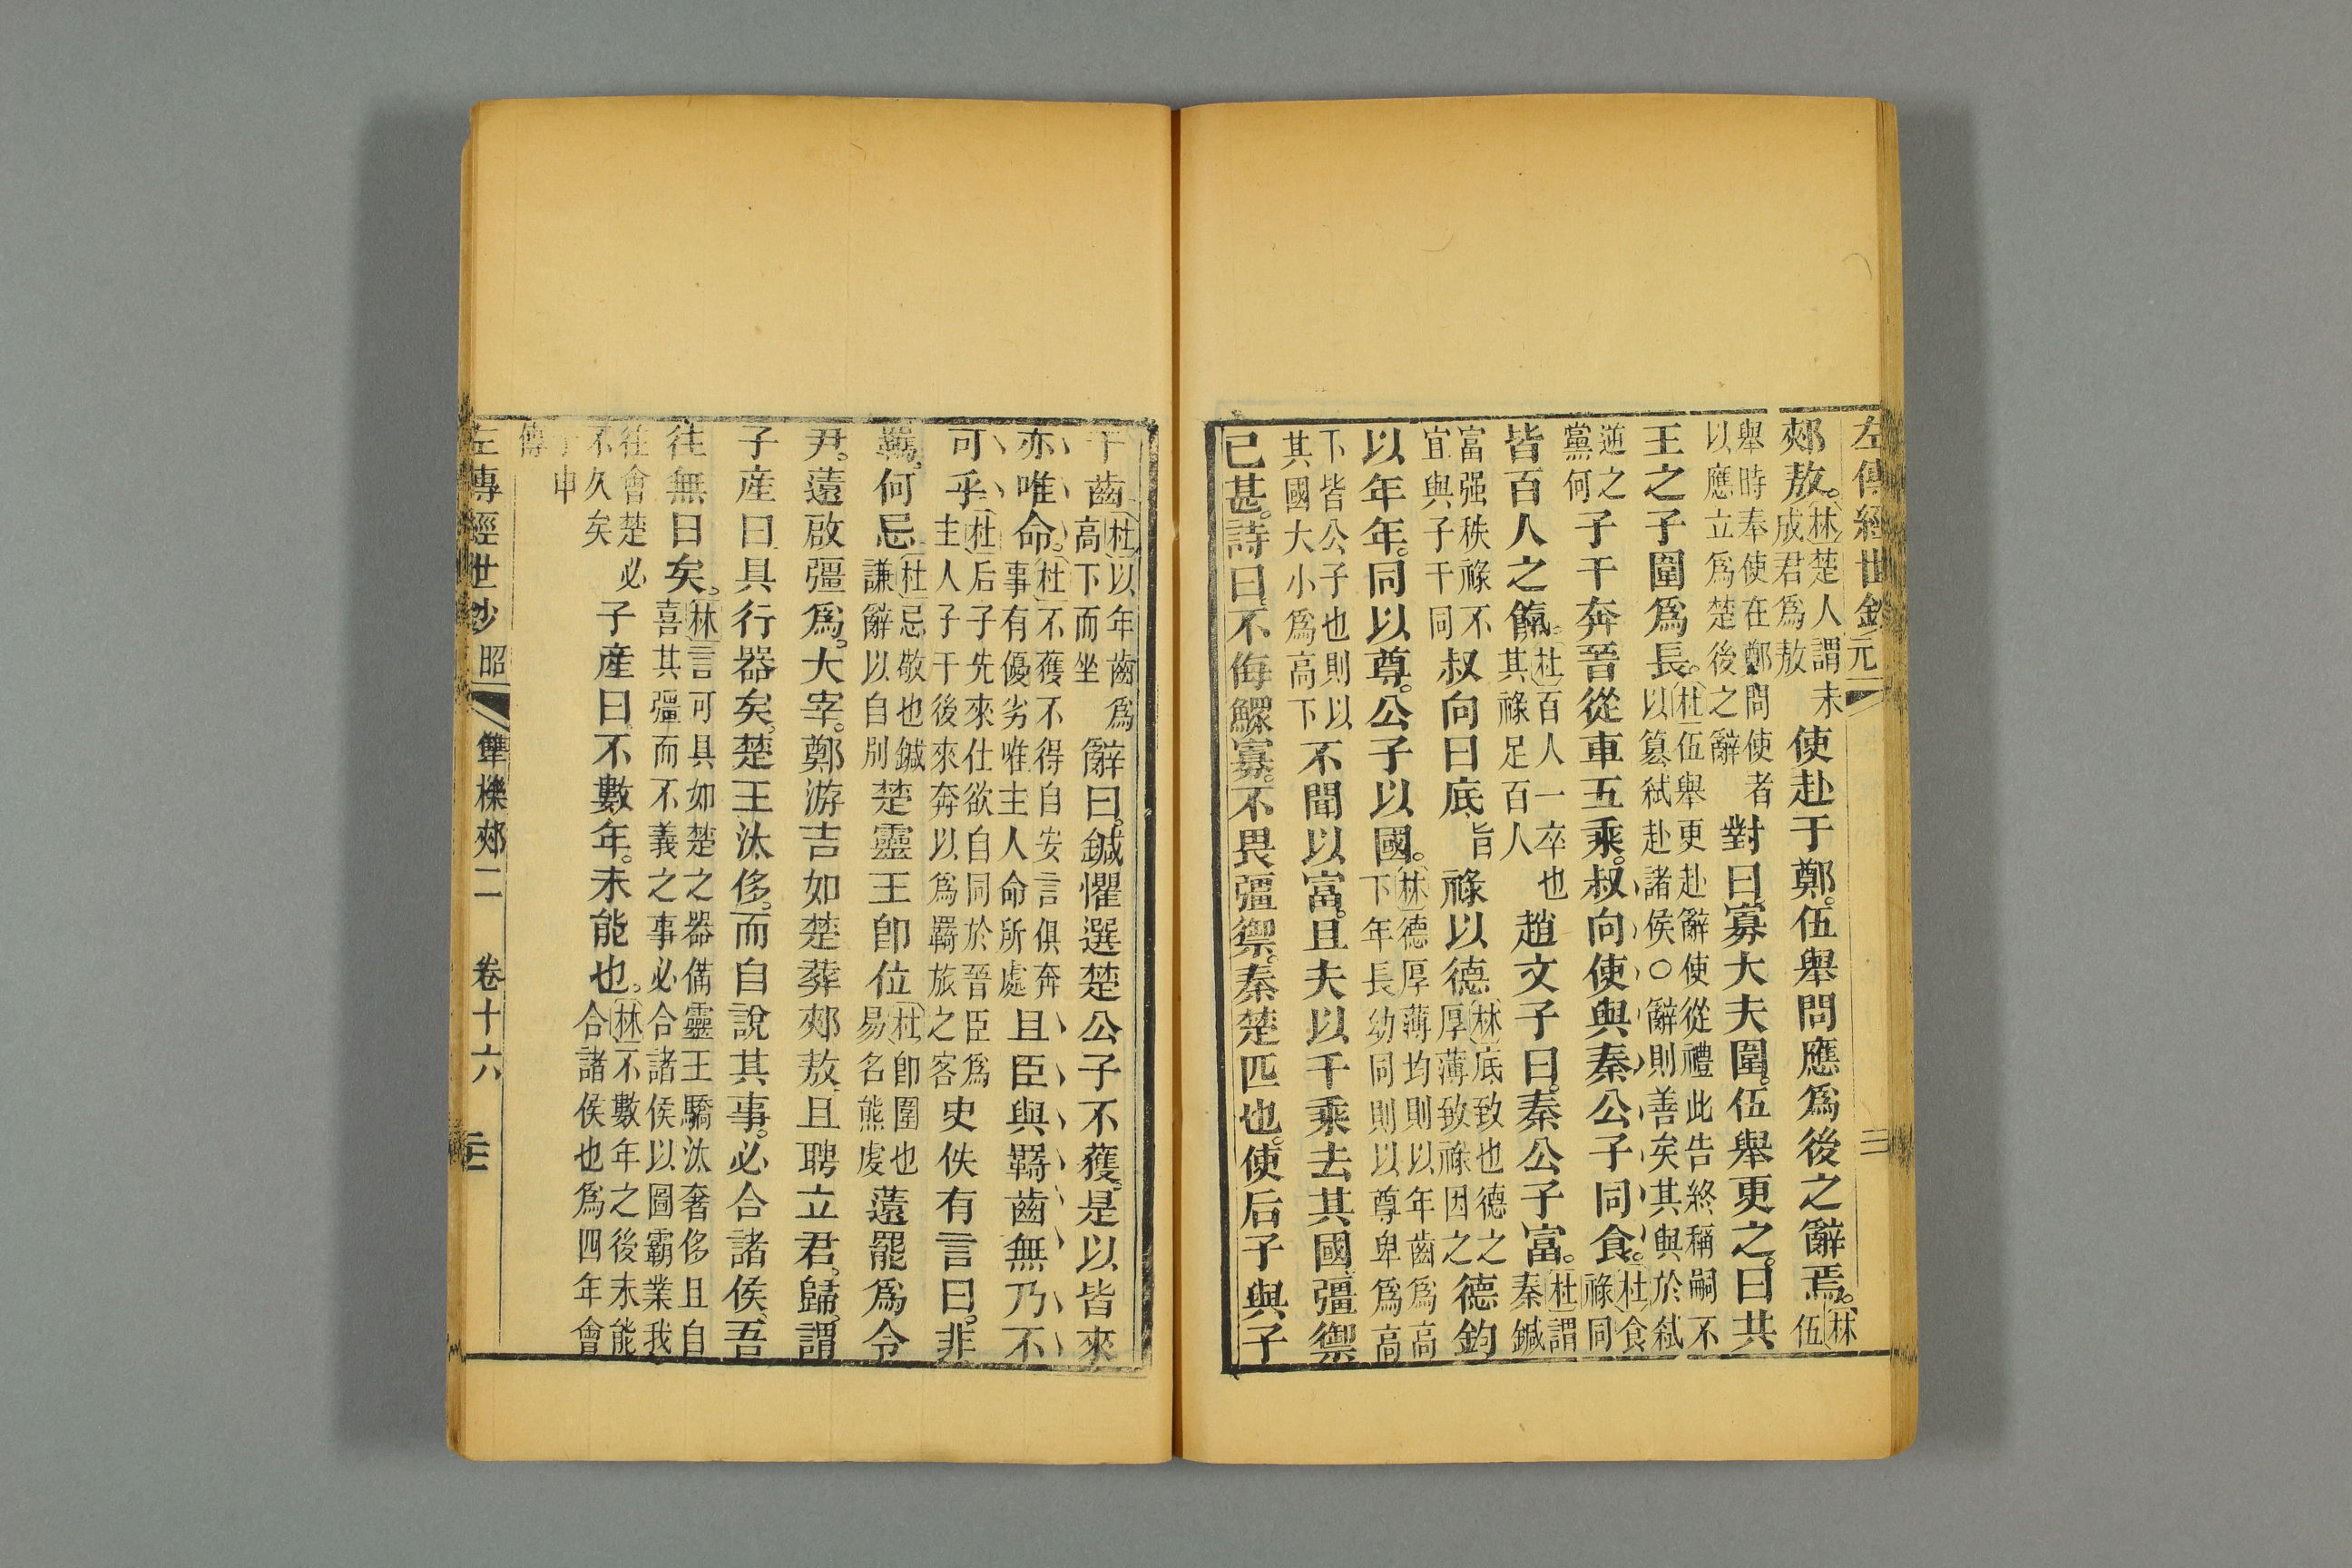 左傳經世鈔 元 三
郟敖。林楚人謂未成君爲敖使赴于鄭。伍舉問應爲後之辭焉。林伍
舉時奉使在鄭問使者以應立爲楚後之辭對曰寡大夫圍。伍舉更之。曰共
王之子圍爲長。杜伍舉更赴辭使從禮此告終稱嗣不以篡弒赴諸侯○辭則善矣其與於弒
逆之黨何子干奔晉從車五乘。叔向使與秦公子同食。杜食祿同
皆百人之餼。杜百人一卒也其祿足百人趙文子曰。秦公子富。杜謂秦鍼
富强秩祿不宜與子干同叔向曰底旨祿以德林底致也德之厚薄致祿因之德鈞
以年年。同以尊。公子以國。林德厚薄均則以年齒爲高下年長幼同則以尊卑爲高
下皆公子也則以其國大小爲高下不聞以富。且夫以千乘去其國彊禦
已甚。詩曰。不侮鰥寡。不畏彊禦。秦楚匹也。使后子與子
干齒杜以年齒爲高下而坐辭曰。鍼懼選楚公子不獲。是以皆來
亦唯命。杜不獲不得自安言俱奔事有優劣唯主人命所處且臣與羇齒無乃不
可乎杜后子先來仕欲自同於晉臣爲主人子干後來奔以爲羇旅之客史佚有言曰。非
羇。何忌杜忌敬也鍼謙辭以自別楚靈王卽位杜卽圍也易名熊虔薳罷爲令
尹。薳啟彊爲。大宰。鄭游吉如楚葬郟敖且聘立君。歸。謂
子產曰具行器矣。楚王汰侈。而自說其事。必合諸侯、吾
往無日矣。林言可具如楚之器備靈王驕汰奢侈且自喜其彊而不義之事必合諸侯以圖霸業我
往會楚必不久矣子產曰不數年。未能也。林不數年之後未能合諸侯也爲四年會
申
傳
左傳經世鈔 昭 隼檪郟二 卷十六 三